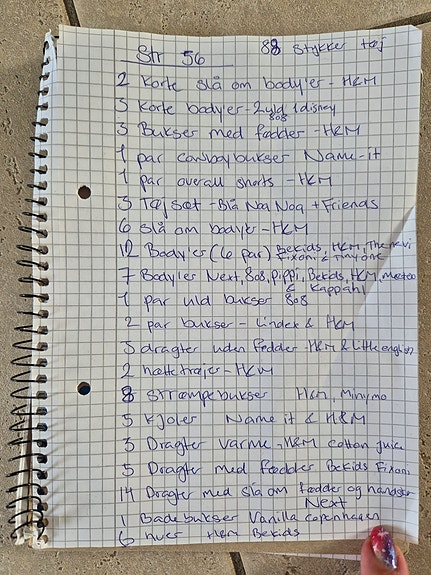 Str 56 88 Stykker tøj
2 Korte slå om body'er - H&M
3 Korte body'er - 2 uld 1 disney
808
3 Bukser med fødder - H&M
1 par cowboybukser Name-it
1 par overall shorts - H&M
3 Tøj sæt - Blå Noa Noa + Friends
6 slå om bodyer - H&M
12 Body'er (6 par) Bekids, H&M, The navi
Fixoni & Tiny one
7 Body'er Next, 808, pippi, Bekids, H&M, meetoo
& Kappahl
1 par uld bukser 808
2 par bukser - Lindex & H&M
3 dragter uden fødder - H&M & Little english
2 hættetrøjer - H&M
8 strømpebukser H&M, Minymo
5 Kjoler Name it & H&M
3 Dragter Varme - H&M cotton juice
5 Dragter med fødder Bekids Fixoni
14 Dragter med slå om fødder og handsker
Next
1 Badebukser Vanilla Copenhagen
6 huer H&M Bekids